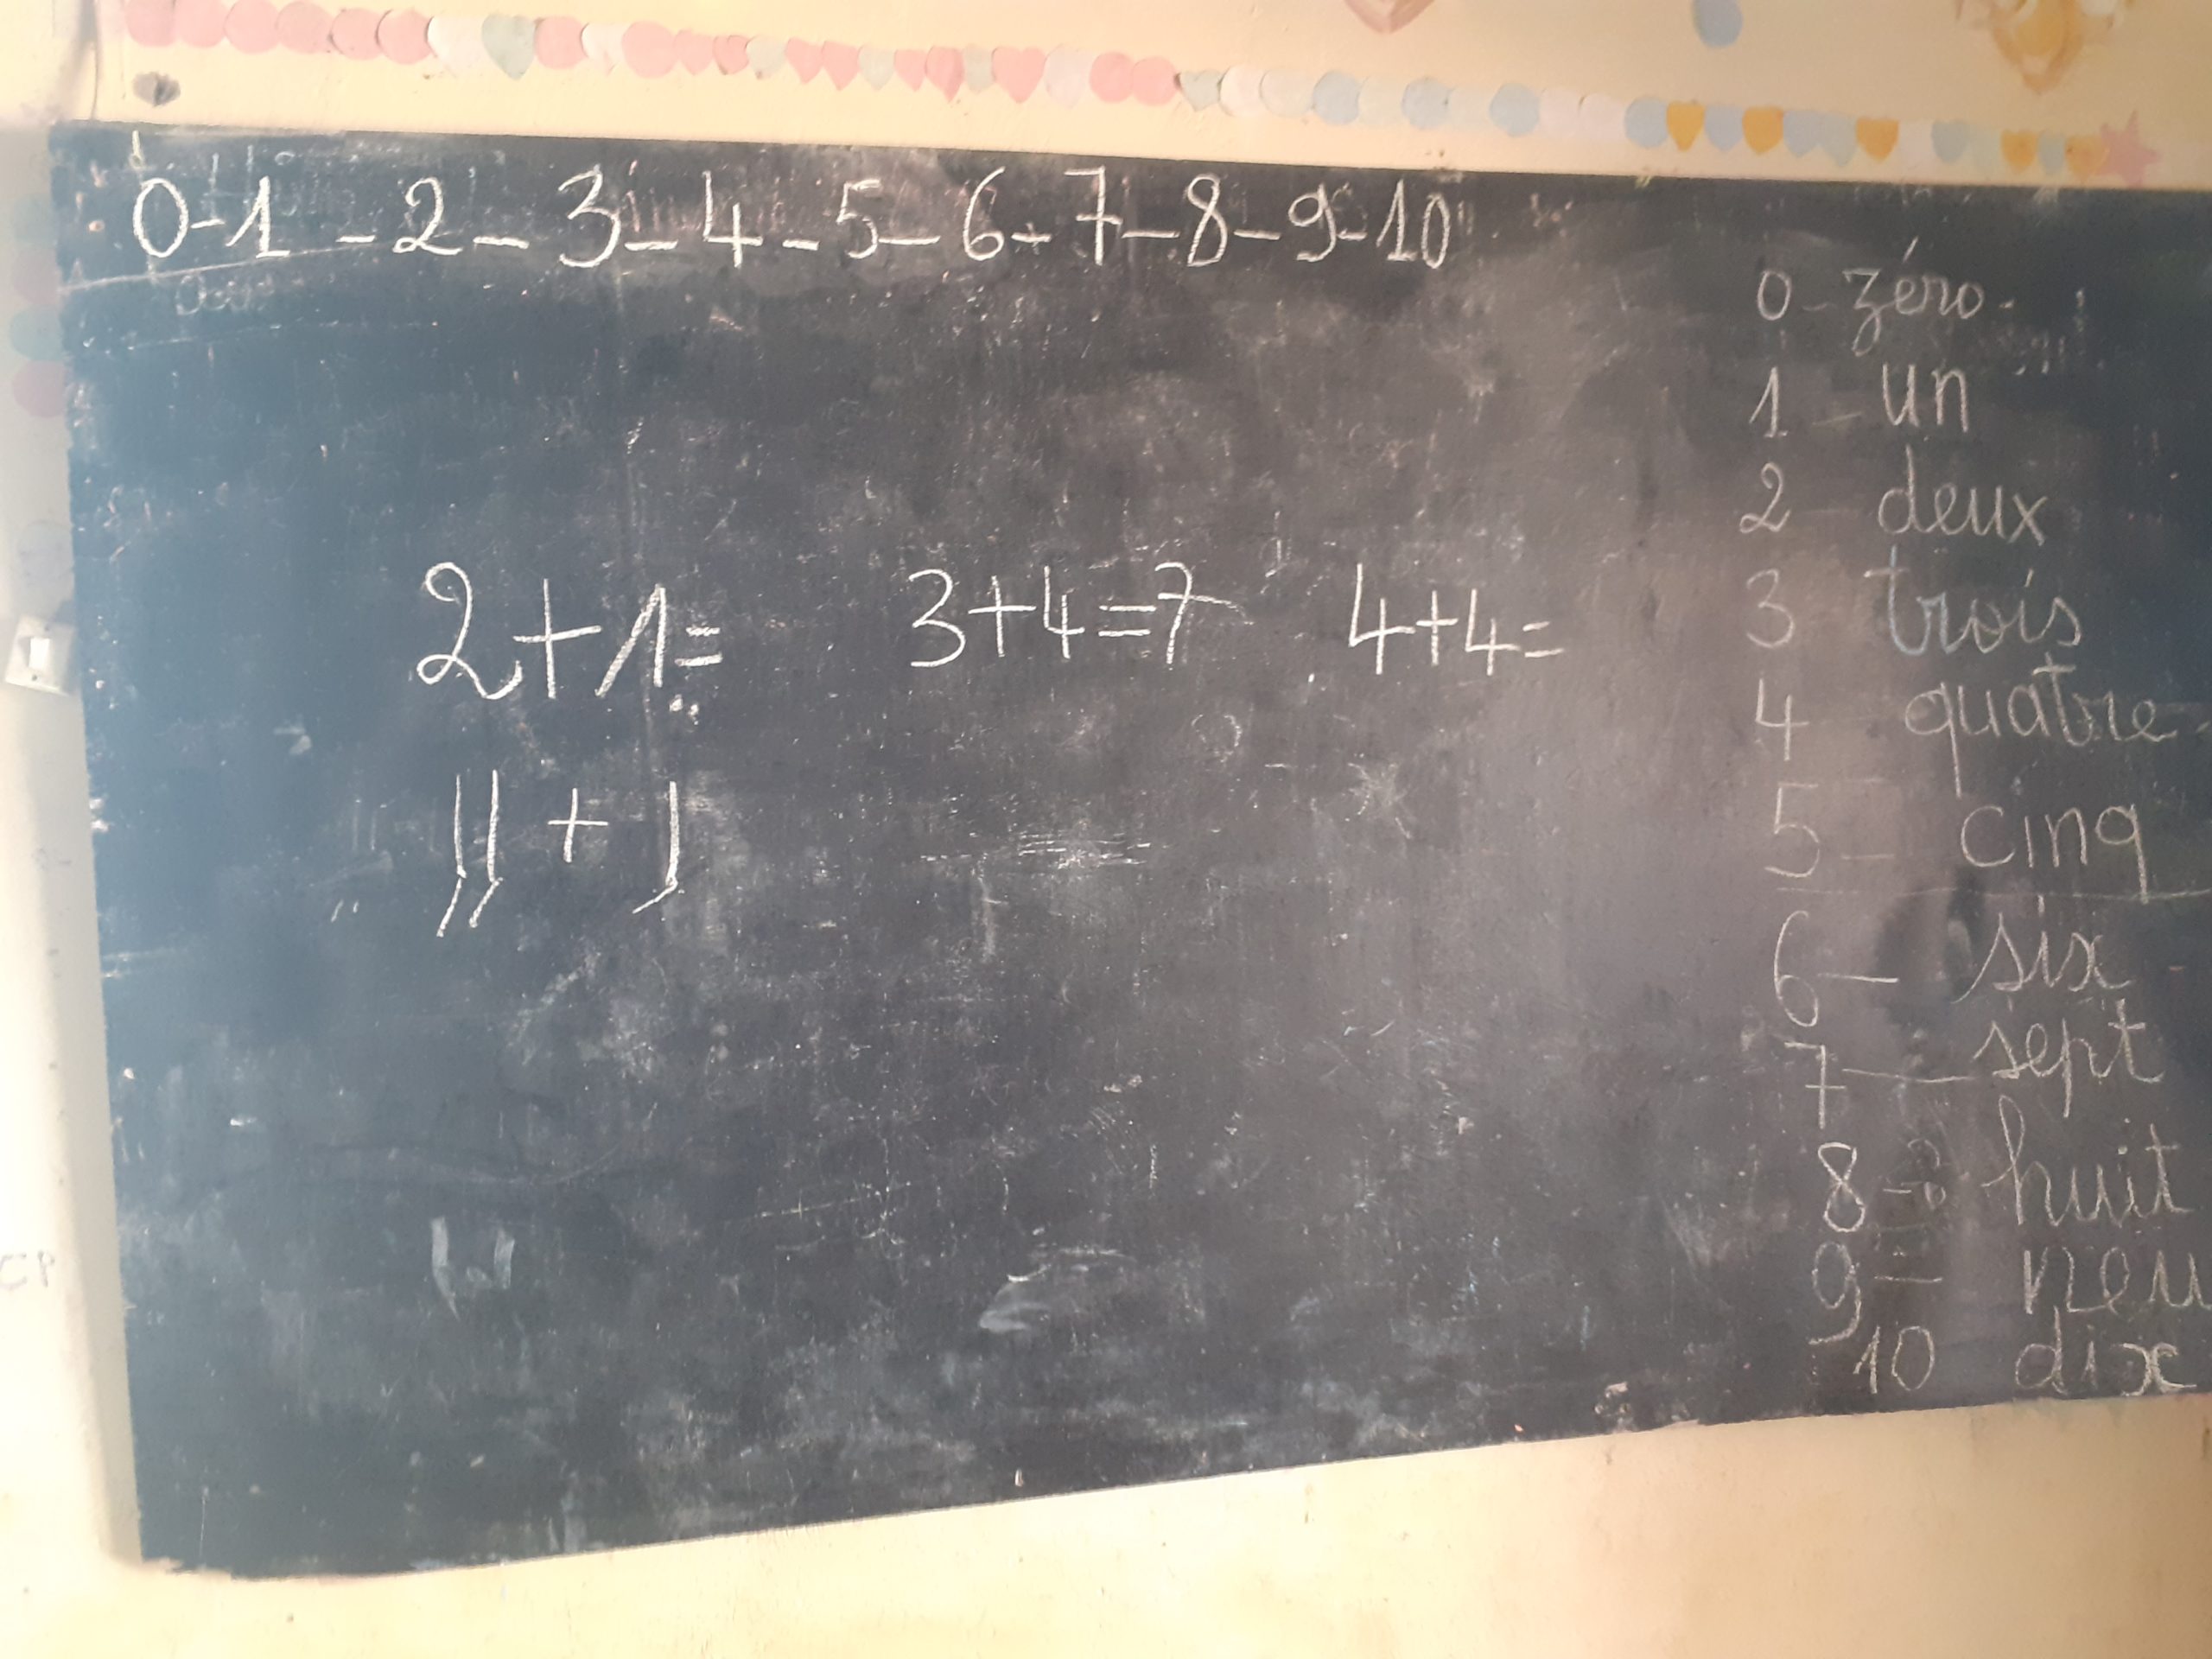 0-1-2-3-4-5-6-7-8-9-10
0-zéro-
1-un
2 deux
3 trois
4 quatre
5-cinq
6-six
7-sept
8-huit
9-neu
10 dix
2+1= 3+4=7 4+4=
|| + |
CP